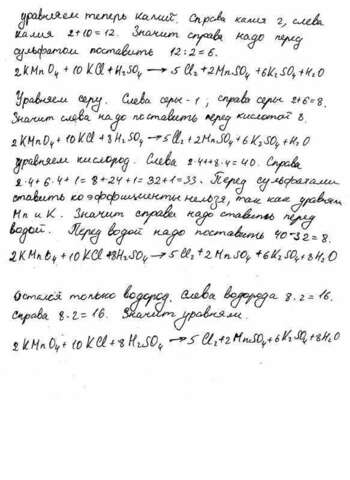 уравняем теперь калий. Справа калия 2, слева
калия 2+10=12. Значит справа надо перед
сульфатом поставить 12:2=6.
2KMnO₄+10KCl+H₂SO₄ → 5Cl₂+2MnSO₄+6K₂SO₄+H₂O
Уравняем серу. Слева серы - 1, справа серы 2+6=8.
Значит слева надо поставить перед кислотой 8.
2KMnO₄+10KCl+8H₂SO₄ → 5Cl₂+2MnSO₄+6K₂SO₄+H₂O
уравняем кислород. Слева 2·4+8·4=40. Справа
2·4+6·4+1=8+24+1=32+1=33. Перед сульфатами
ставить коэффициенты нельзя, так как уравняли
Mn и K. Значит справа надо ставить перед
водой. Перед водой надо поставить 40-32=8.
2KMnO₄+10KCl+8H₂SO₄ → 5Cl₂+2MnSO₄+6K₂SO₄+8H₂O
Остался только водород. Слева водорода 8·2=16.
Справа 8·2=16. Значит уравняли.
2KMnO₄+10KCl+8H₂SO₄ → 5Cl₂+2MnSO₄+6K₂SO₄+8H₂O